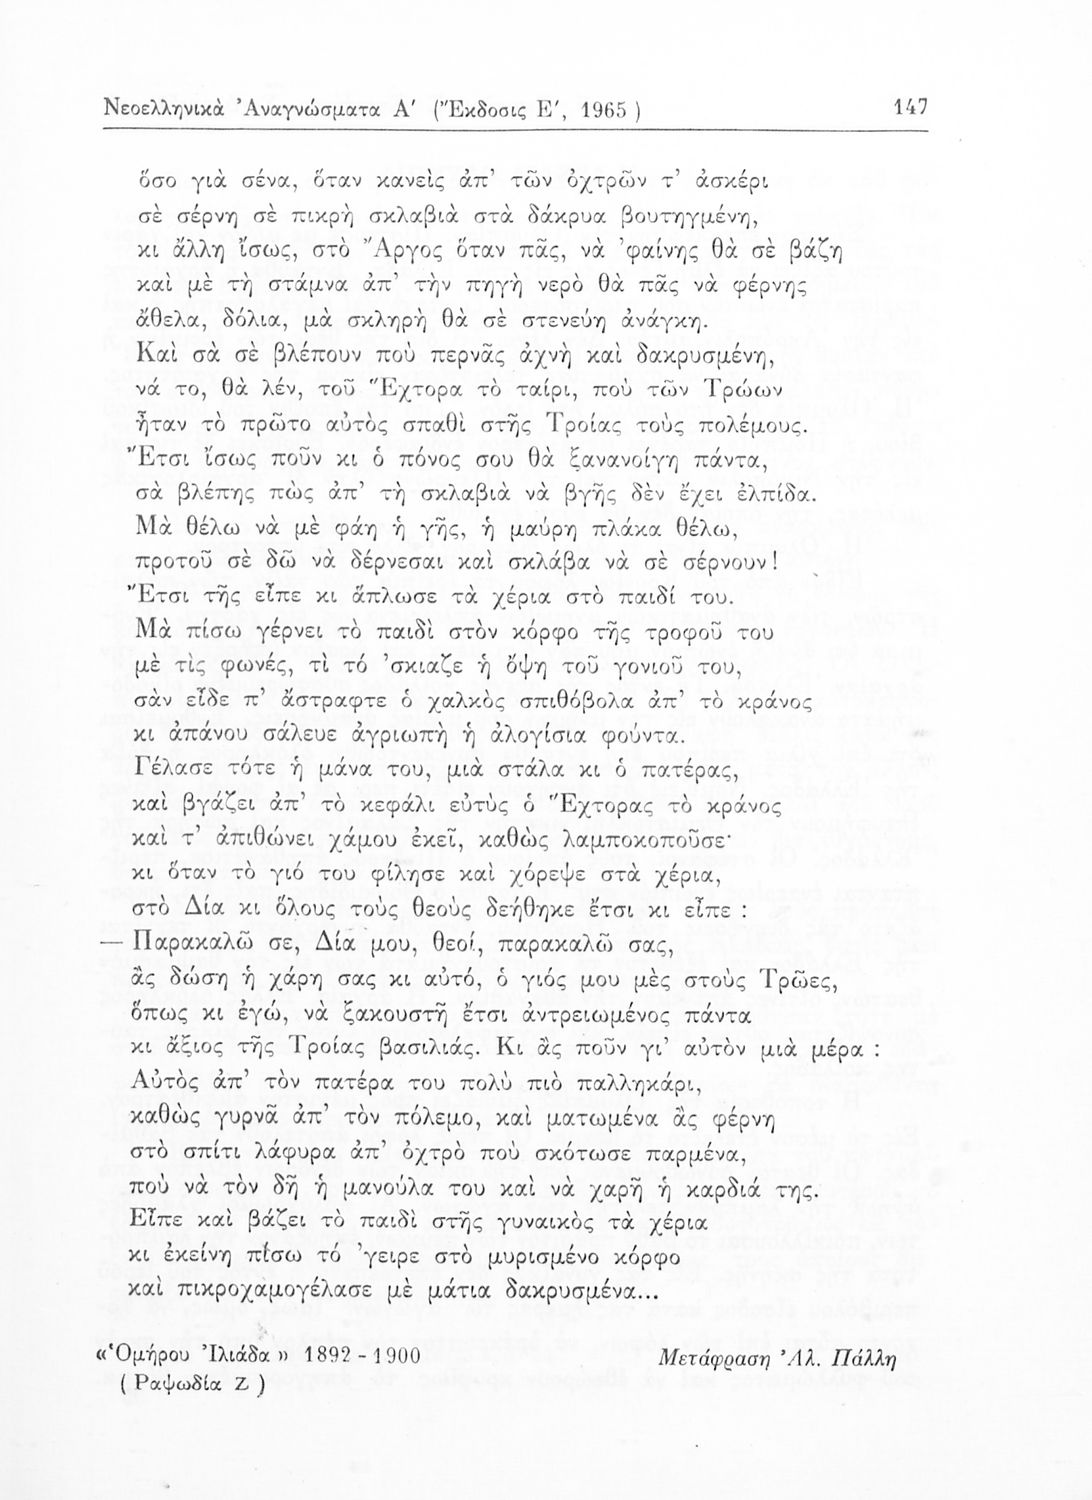 Νεοελληνικὰ Ἀναγνώσματα Α' (Ἔκδοσις Ε', 1965 ) 147
ὅσο γιὰ σένα, ὅταν κανεὶς ἀπ' τῶν ὀχτρῶν τ' ἀσκέρι
σὲ σέρνη σὲ πικρὴ σκλαβιὰ στὰ δάκρυα βουτηγμένη,
κι ἄλλη ἴσως, στὸ Ἄργος ὅταν πᾶς, νὰ 'φαίνης θὰ σὲ βάζη
καὶ μὲ τὴ στάμνα ἀπ' τὴν πηγὴ νερὸ θὰ πᾶς νὰ φέρνης
ἄθελα, δόλια, μὰ σκληρὴ θὰ σὲ στενεύη ἀνάγκη.
Καὶ σὰ σὲ βλέπουν ποὺ περνᾶς ἀχνὴ καὶ δακρυσμένη,
νά το, θὰ λέν, τοῦ Ἕχτορα τὸ ταίρι, ποὺ τῶν Τρώων
ἦταν τὸ πρῶτο αὐτὸς σπαθὶ στῆς Τροίας τοὺς πολέμους.
Ἔτσι ἴσως ποῦν κι ὁ πόνος σου θὰ ξανανοίγη πάντα,
σὰ βλέπης πὼς ἀπ' τὴ σκλαβιὰ νὰ βγῆς δὲν ἔχει ἐλπίδα.
Μὰ θέλω νὰ μὲ φάη ἡ γῆς, ἡ μαύρη πλάκα θέλω,
προτοῦ σὲ δῶ νὰ δέρνεσαι καὶ σκλάβα νὰ σὲ σέρνουν!
Ἔτσι τῆς εἶπε κι ἅπλωσε τὰ χέρια στὸ παιδί του.
Μὰ πίσω γέρνει τὸ παιδὶ στὸν κόρφο τῆς τροφοῦ του
μὲ τὶς φωνές, τὶ τό 'σκιαζε ἡ ὄψη τοῦ γονιοῦ του,
σὰν εἶδε π' ἄστραφτε ὁ χαλκὸς σπιθόβολα ἀπ' τὸ κράνος
κι ἀπάνου σάλευε ἀγριωπὴ ἡ ἀλογίσια φούντα.
Γέλασε τότε ἡ μάνα του, μιὰ στάλα κι ὁ πατέρας,
καὶ βγάζει ἀπ' τὸ κεφάλι εὐτὺς ὁ Ἕχτορας τὸ κράνος
καὶ τ' ἀπιθώνει χάμου ἐκεῖ, καθὼς λαμποκοποῦσε·
κι ὅταν τὸ γιό του φίλησε καὶ χόρεψε στὰ χέρια,
στὸ Δία κι ὅλους τοὺς θεοὺς δεήθηκε ἔτσι κι εἶπε :
— Παρακαλῶ σε, Δία μου, θεοί, παρακαλῶ σας,
ἂς δώση ἡ χάρη σας κι αὐτό, ὁ γιός μου μὲς στοὺς Τρῶες,
ὅπως κι ἐγώ, νὰ ξακουστῆ ἔτσι ἀντρειωμένος πάντα
κι ἄξιος τῆς Τροίας βασιλιάς. Κι ἂς ποῦν γι' αὐτὸν μιὰ μέρα :
Αὐτὸς ἀπ' τὸν πατέρα του πολὺ πιὸ παλληκάρι,
καθὼς γυρνᾶ ἀπ' τὸν πόλεμο, καὶ ματωμένα ἂς φέρνη
στὸ σπίτι λάφυρα ἀπ' ὀχτρὸ ποὺ σκότωσε παρμένα,
ποὺ νὰ τὸν δῆ ἡ μανούλα του καὶ νὰ χαρῆ ἡ καρδιά της.
Εἶπε καὶ βάζει τὸ παιδὶ στῆς γυναικὸς τὰ χέρια
κι ἐκείνη πίσω τό 'γειρε στὸ μυρισμένο κόρφο
καὶ πικροχαμογέλασε μὲ μάτια δακρυσμένα...
«Ὁμήρου Ἰλιάδα» 1892 - 1900 Μετάφραση Ἀλ. Πάλλη
( Ραψωδία Ζ )